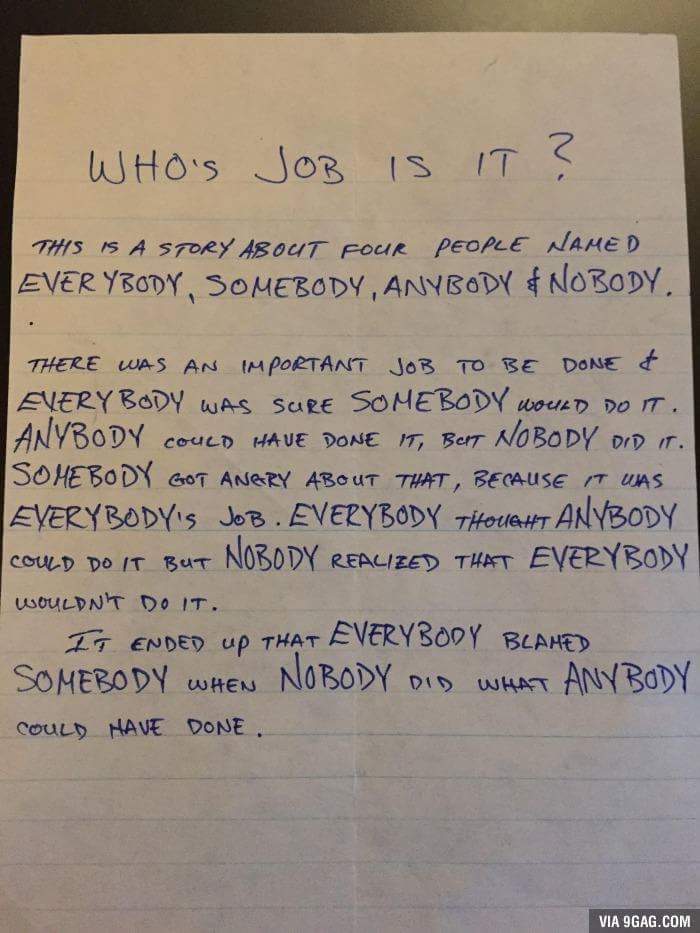 WHO'S JOB IS IT ?
THIS IS A STORY ABOUT FOUR PEOPLE NAMED
EVERYBODY, SOMEBODY, ANYBODY & NOBODY.
.
THERE WAS AN IMPORTANT JOB TO BE DONE &
EVERYBODY WAS SURE SOMEBODY WOULD DO IT.
ANYBODY COULD HAVE DONE IT, BUT NOBODY DID IT.
SOMEBODY GOT ANGRY ABOUT THAT, BECAUSE IT WAS
EVERYBODY'S JOB. EVERYBODY THOUGHT ANYBODY
COULD DO IT BUT NOBODY REALIZED THAT EVERYBODY
WOULDN'T DO IT.
IT ENDED UP THAT EVERYBODY BLAMED
SOMEBODY WHEN NOBODY DID WHAT ANYBODY
COULD HAVE DONE.
VIA 9GAG.COM